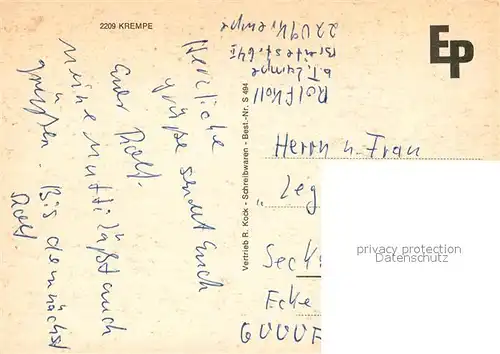 2209 KREMPE
Ep
Herzliche
grüße sendet Euch
Euer Rolf.
Meine Mutti läßt auch
grüßen. Bis demnächst
Rolf.
Rolf Koll
b. T. Lumpe
Breitestr. 64
2209 Krempe
Vertrieb R. Kock - Schreibwaren - Best.-Nr. S 494
Herrn u. Frau
Leg
Seck
Ecke
6000F
privacy protection
Datenschutz